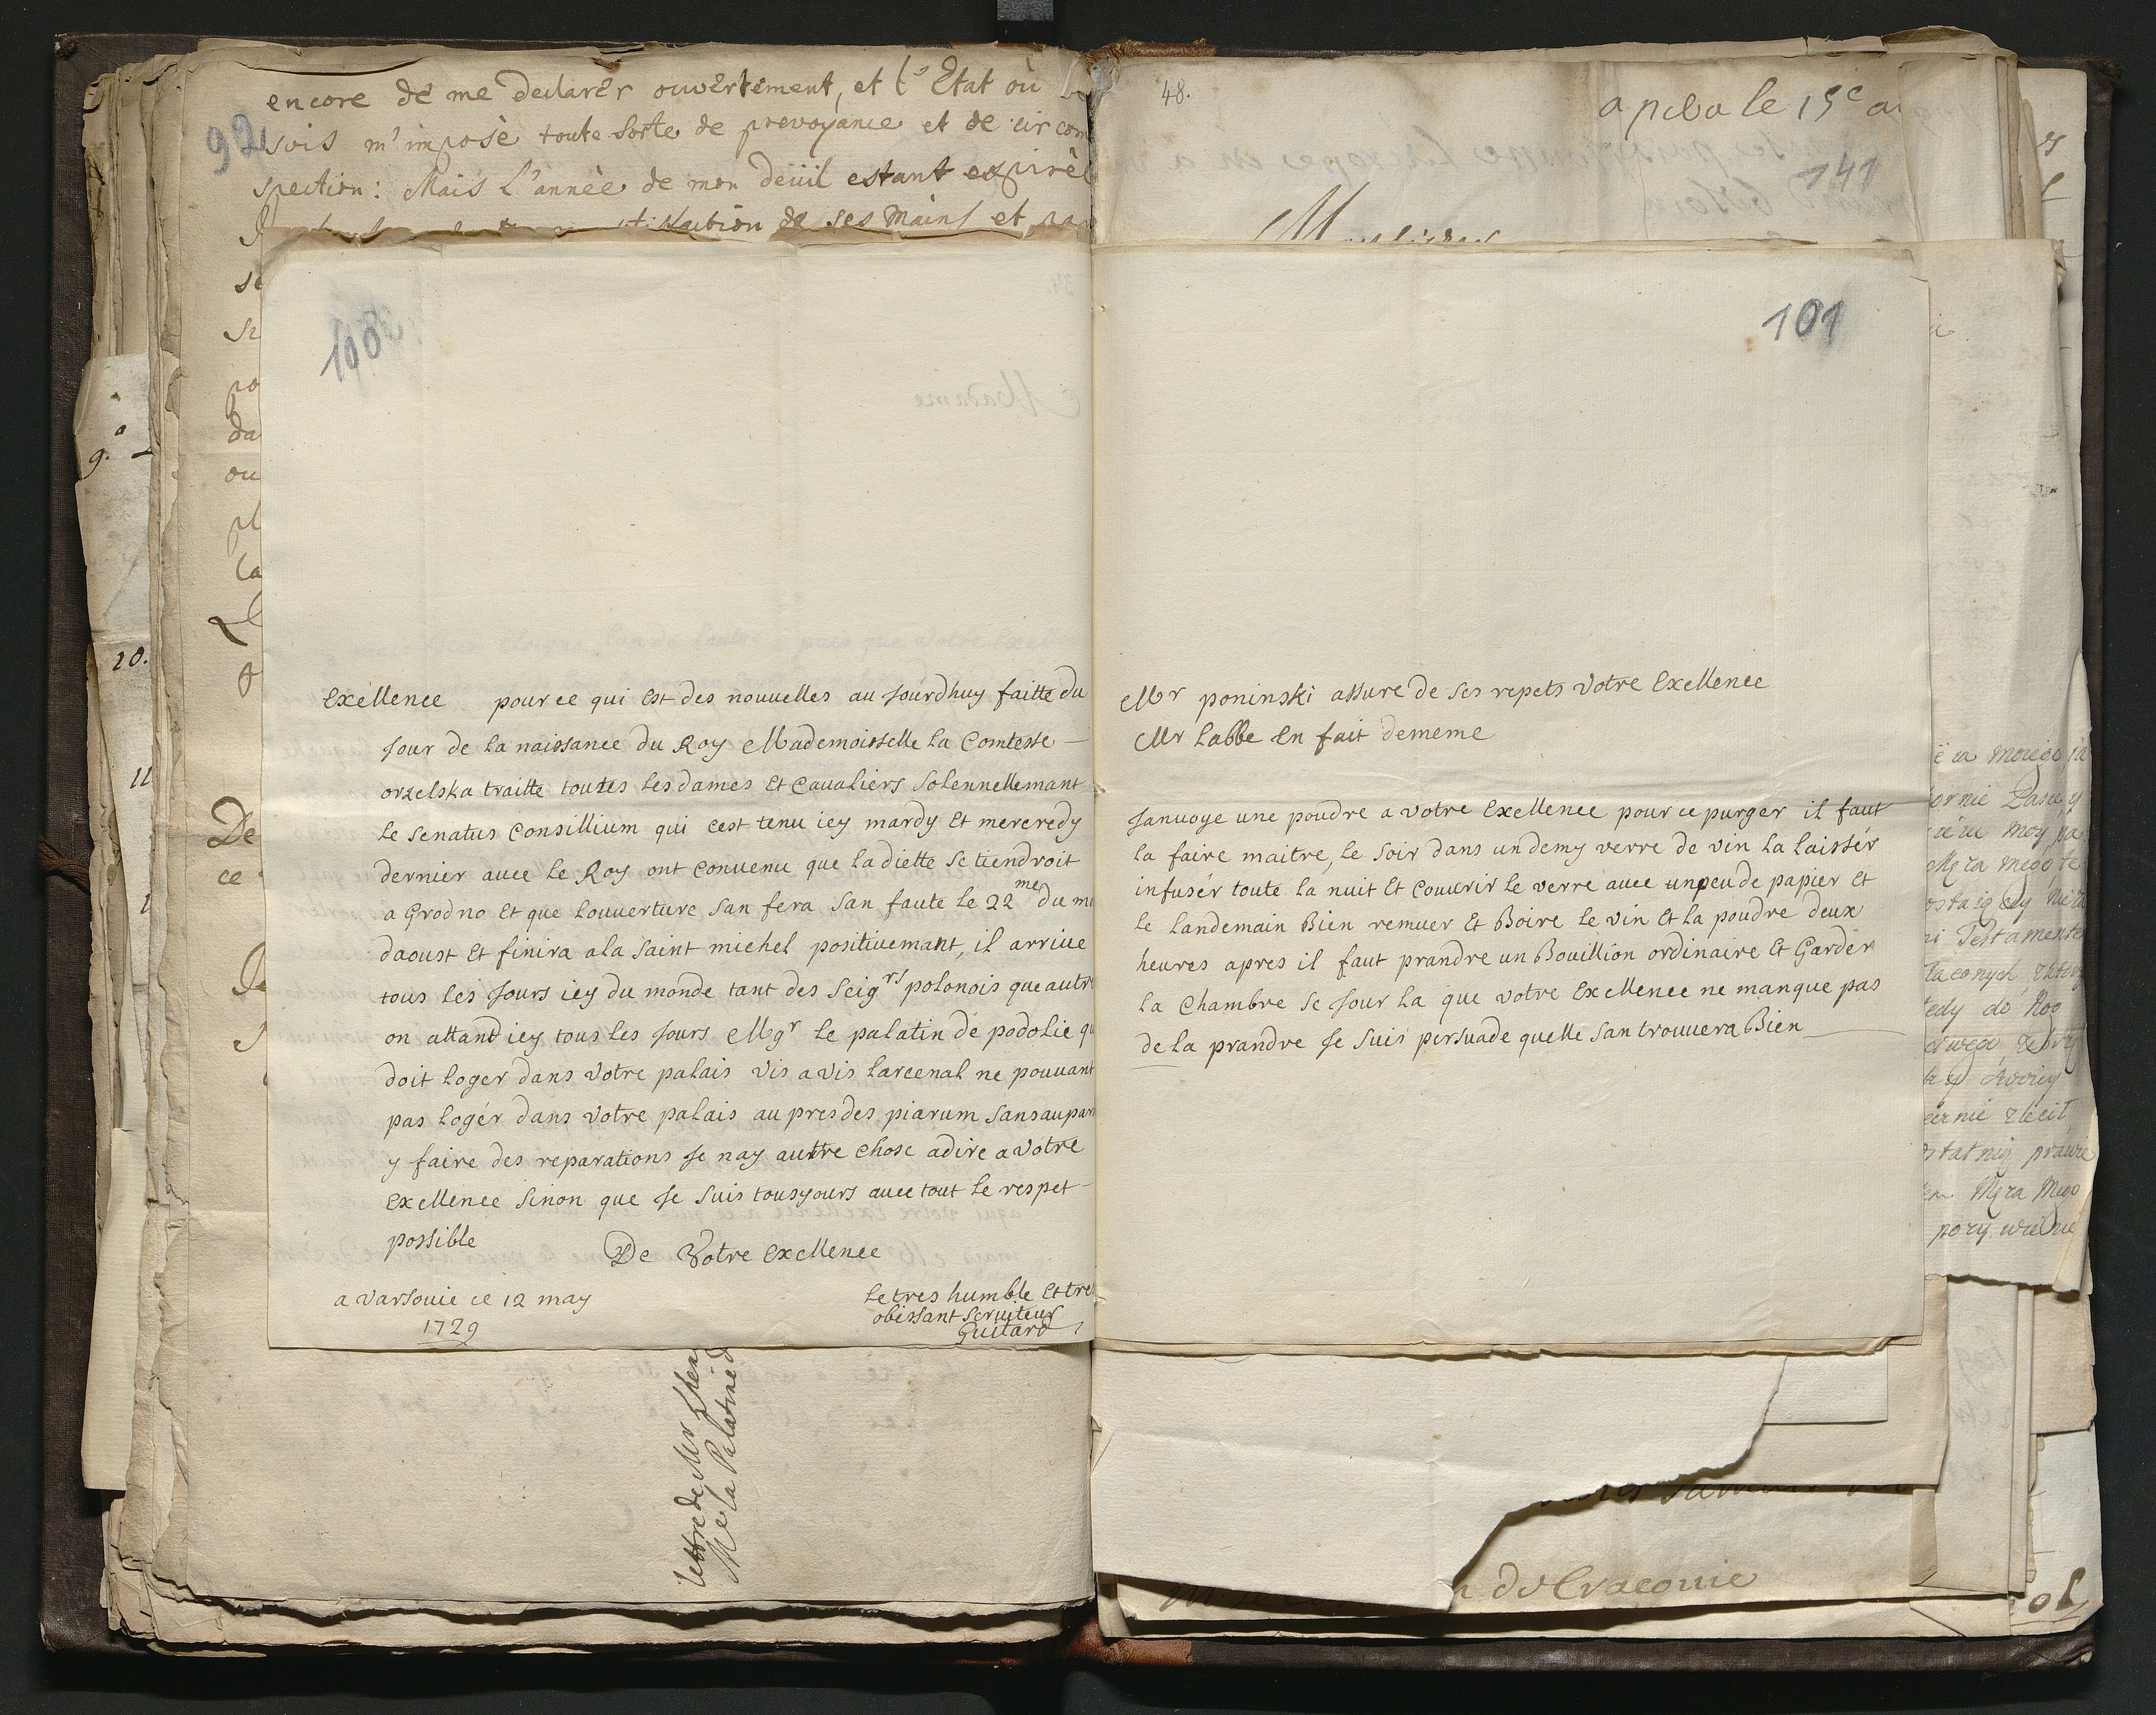 encore de me declarer ouvertement, et l'Etat où
92
suis m'impose toute sorte de prevoyance et de circom
spection: Mais L'année de mon deüil estant expirée
de ses mains et
100
Exellence pour ce qui Est des nouuelles au Jourdhuy faitte du
Jour de la naissance du Roy Mademoisselle la Comtesse
orzelska traitte toutes les dames Et Caualiers Solennellemant
le Senatus Consillium qui cest tenu icy mardy Et mercredy
dernier auec le Roy ont conuenu que la diette se tiendroit
a Grodno Et que louuerture san fera san faute le 22me du
daoust Et finira ala saint michel positiuemant, il arriue
tous les Jours icy du monde tant des Seigrs polonois que autr
on attand icy tous les Jours Mgr le palatin de podolie qu
doit loger dans votre palais vis a vis larcenal ne pouuant
pas logér dans votre palais au pres des piarum sans aupar
y faire des reparations Je nay auttre chose adire a votre
Exellence sinon que Je suis tousyours auec tout le respet
possible
De Votre Exellence
a varsouie ce 12 may
1729
le tres humble Et tre
obeissant seruiteur
Guitard
lettre de Mr
Me la Palatine d
48.
a le 15e
141
101
Mr poninski assure de ses repets votre Exellence
Mr labbe En fait dememe
Januoye une poudre a votre Exellence pour ce purger il faut
la faire maitre, le soir dans un demy verre de vin la laissér
infusér toute la nuit Et couurir le verre auec un peu de papier Et
le landemain Bien remuer Et Boire le vin Et la poudre deux
heures apres il faut prandre un Bouillion ordinaire Et Gardér
la Chambre se Jour la que votre Exellence ne manque pas
de la prandre Je suis persuade quelle san trouuera Bien
de Cracouie
9.
10.
11
De
ce